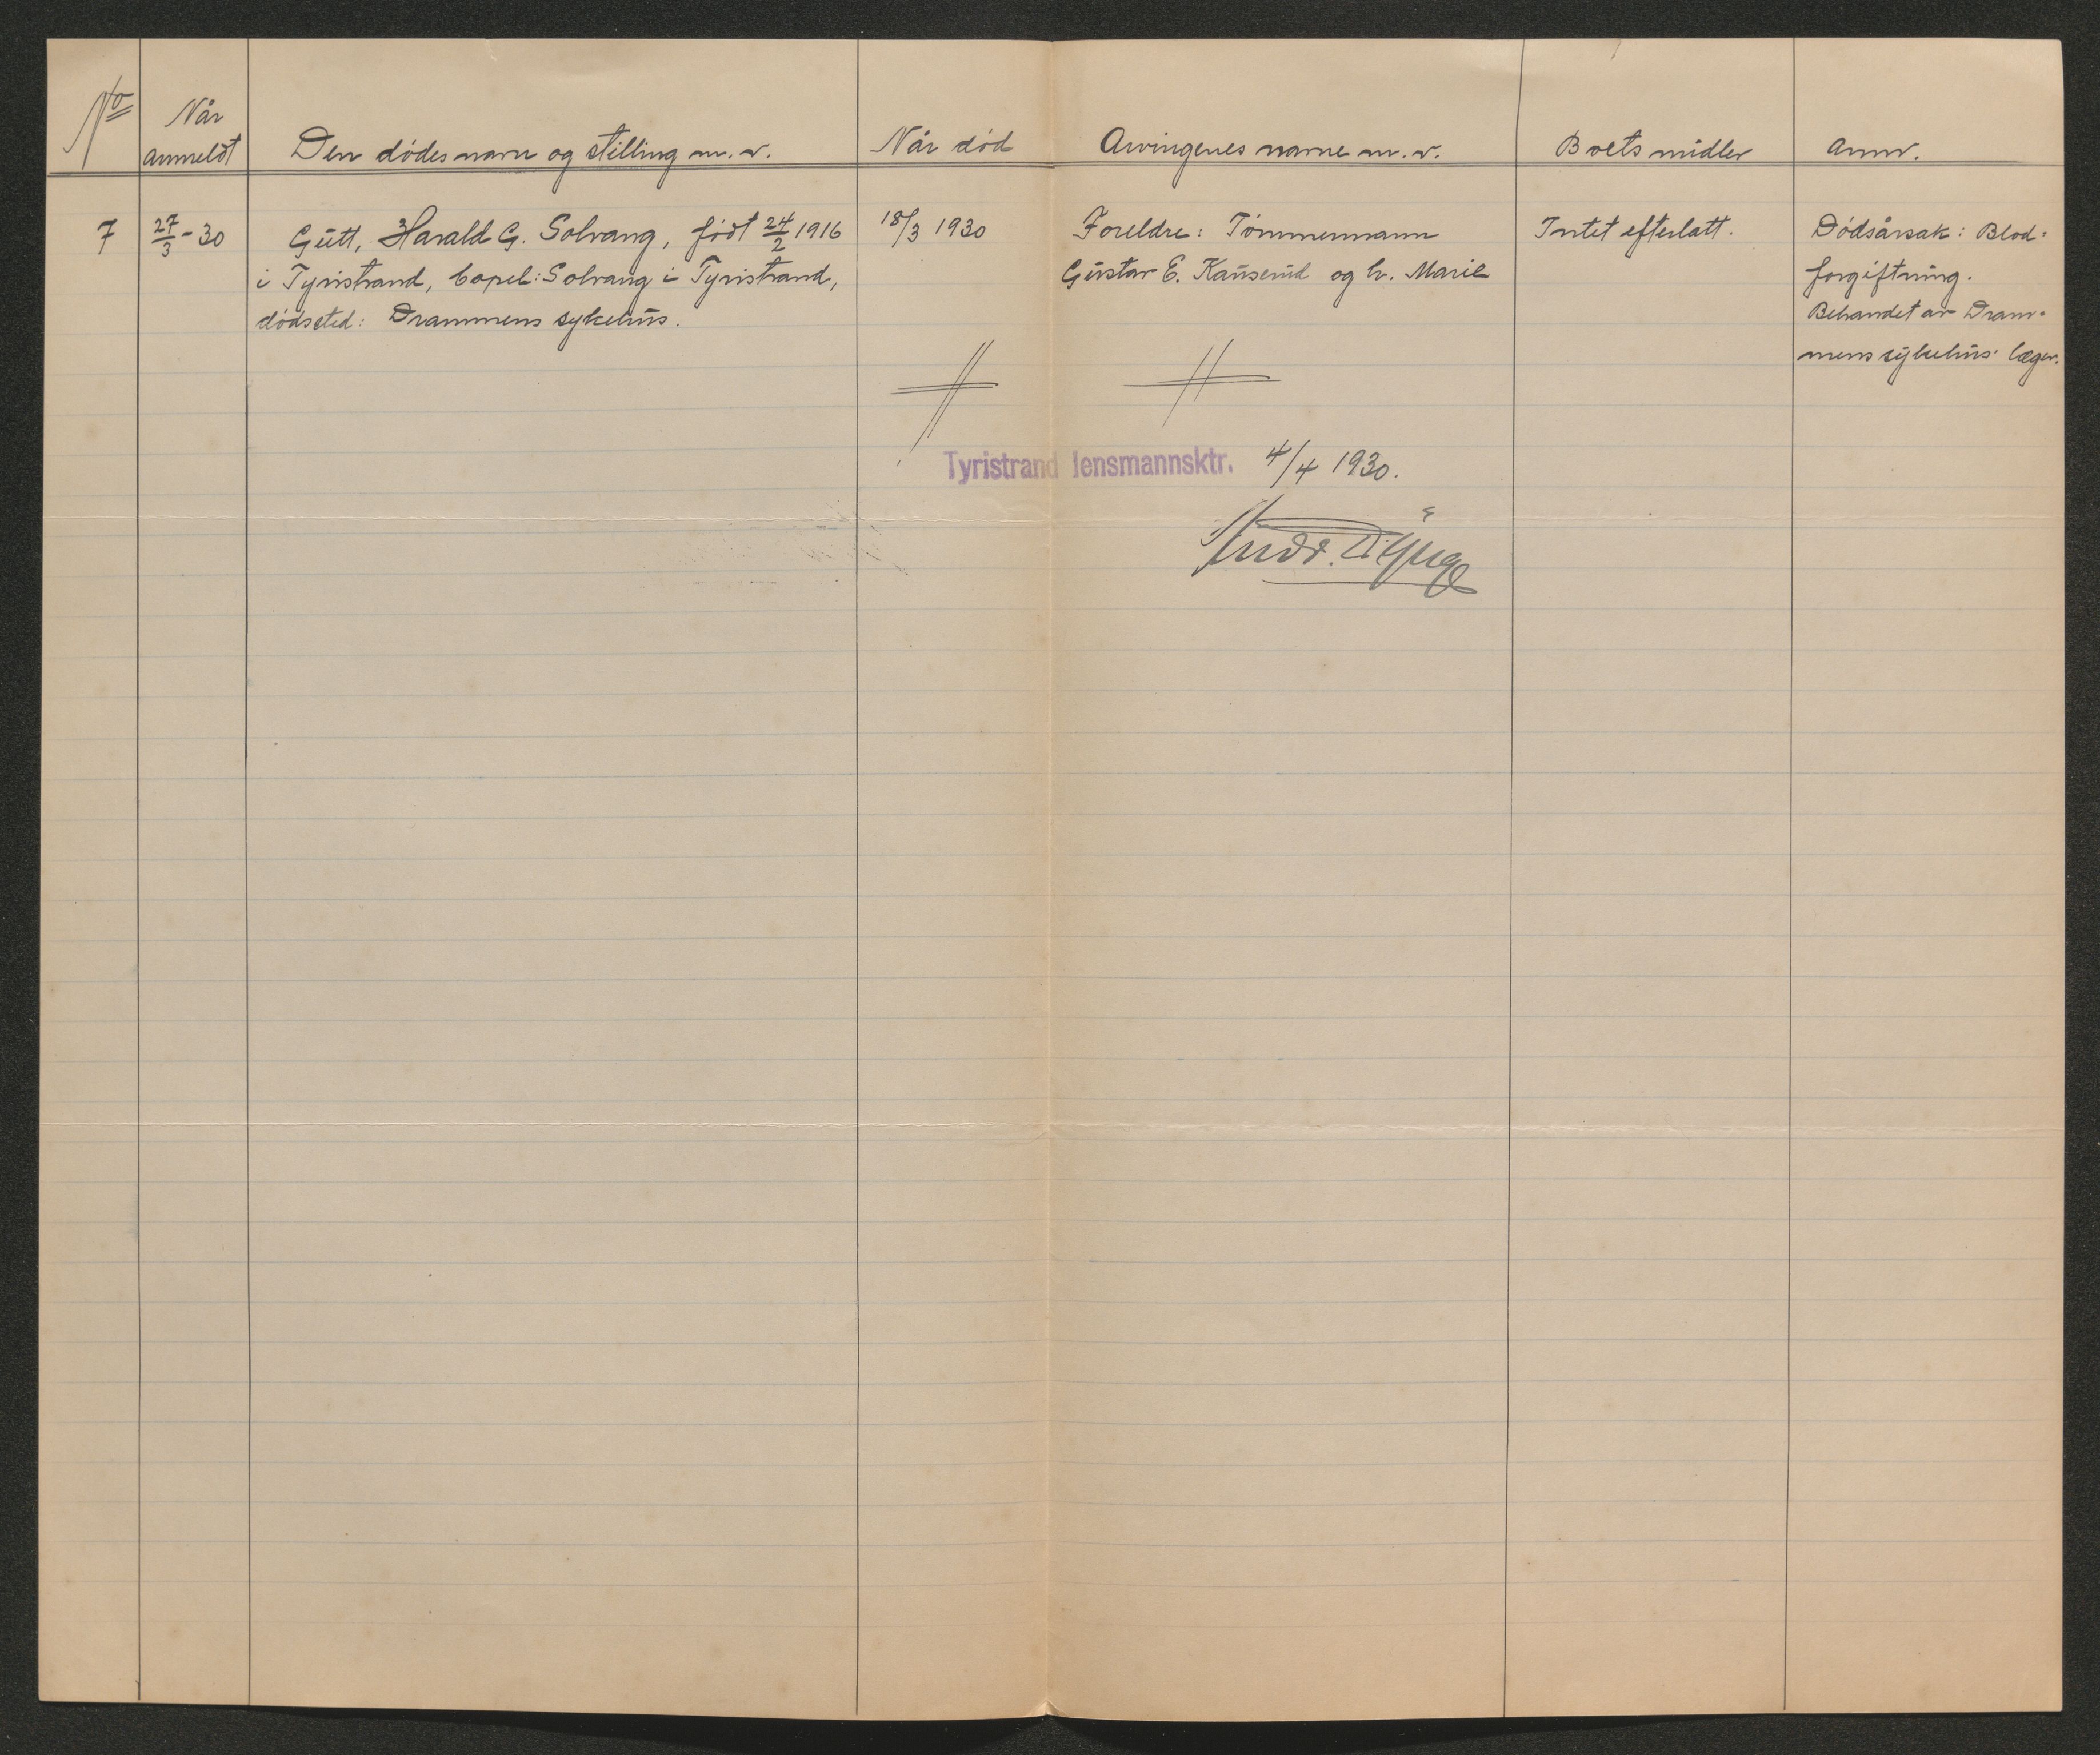 No
Når
anmeldt
Den dødes navn og stilling m. v.
Når død
Arvingenes navne m. v.
Boets midler
Anm.
7
27/3 - 30
Gutt, Harald G. Solvang, født 24/2 1916
i Tyristrand, bopel: Solvang i Tyristrand,
dødsted: Drammens sykehus.
18/3 1930
Foreldre: Tømmermann
Gustav E. Kauserud og h. Marie
Intet efterlatt.
Dødsårsak: Blod=
forgiftning.
Behandlet av Dram=
mens sykehus' læger.
Tyristrand lensmannsktr. 4/4 1930.